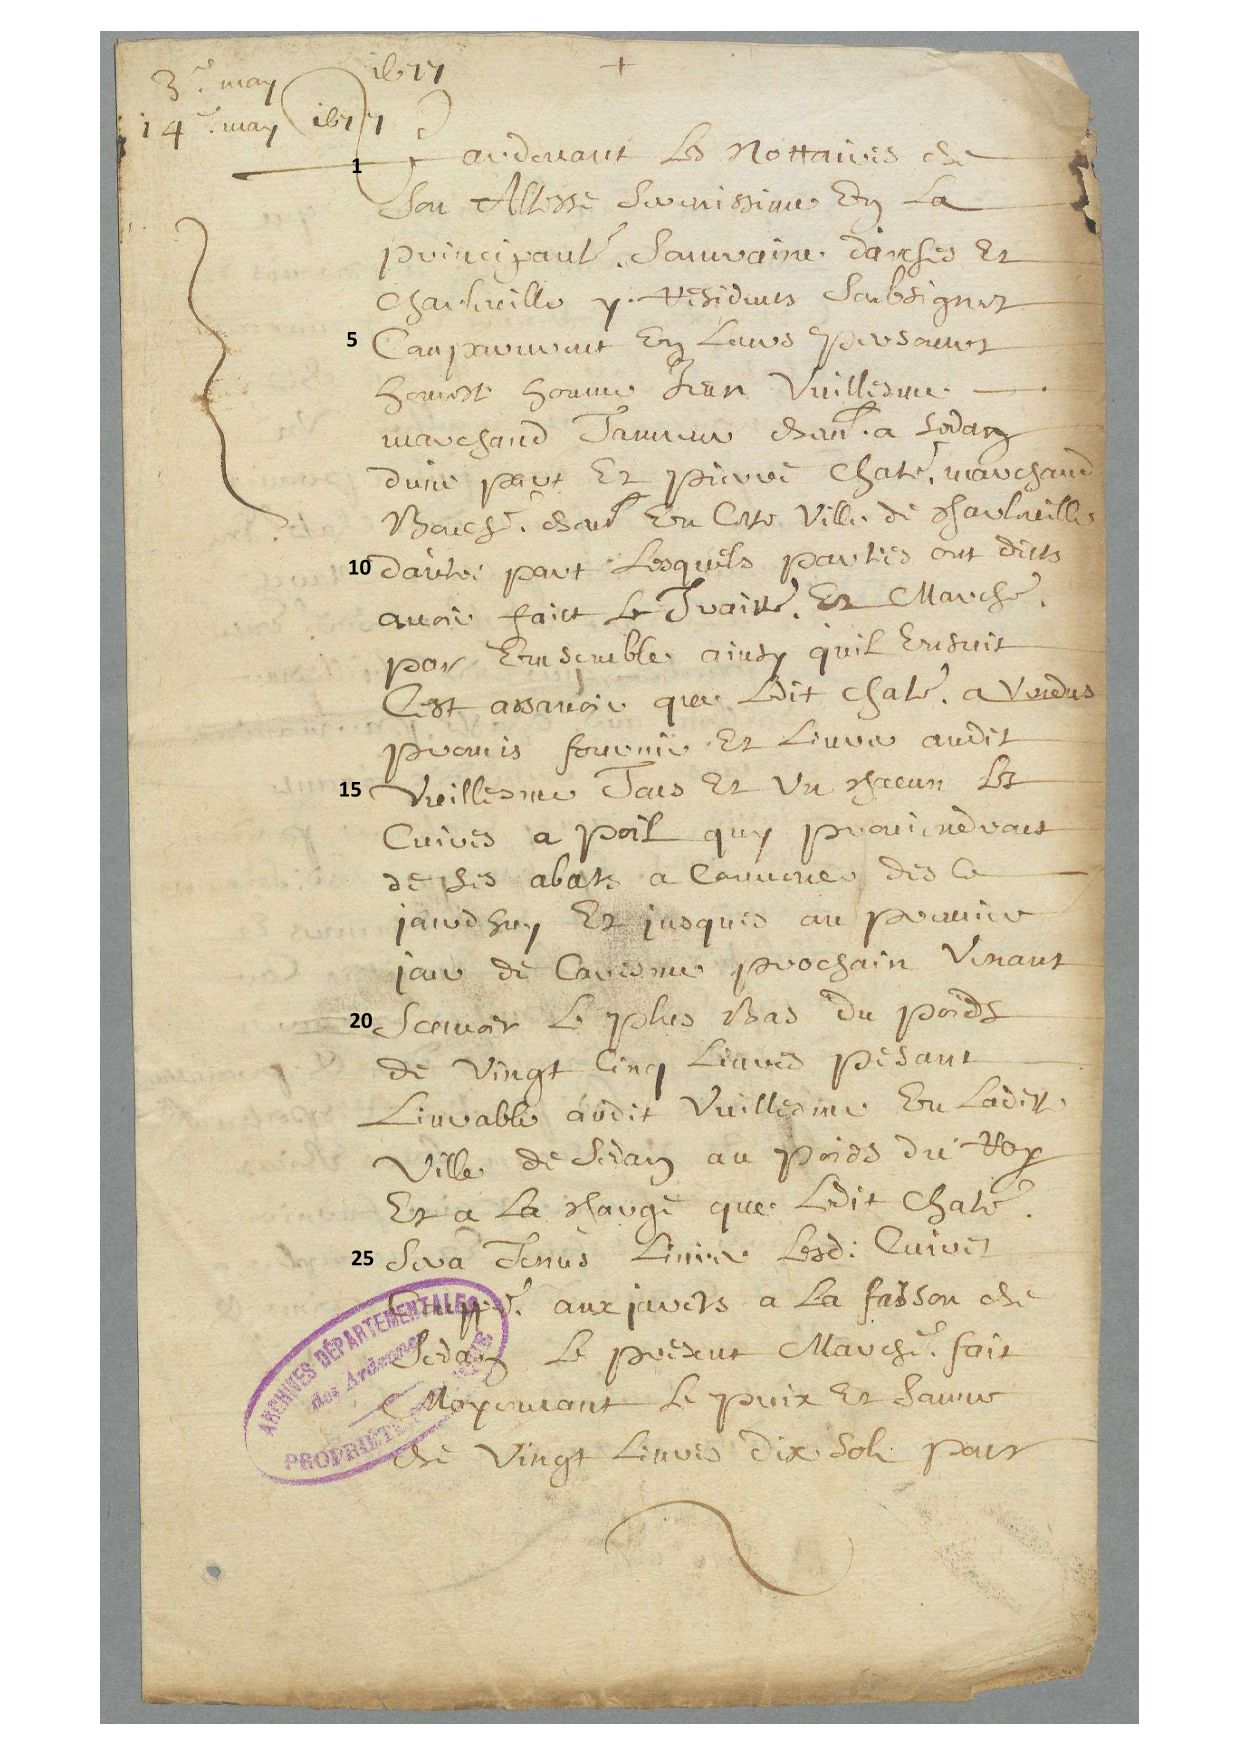 3e. may 1677
14e. may 1677
+
1 Pardevant Les Nottaires de
Son Altesse Serenissime En La
principauté Souveraine darches Et
Charleville y Residens Soubsignez
5 Comparurent En Leurs personnes
honeste homme Jean Vuillesme
marchand Tanneur demt. a Sedan
d'une part Et pierre Chaté marchand
Boucher demt En Cette Ville de Charleville
10 dautre part Lesquels parties ont dites
avoir faict Le Traitté Et Marché
par Ensemble ainsy quil Ensuit
Cest assavoir que Ledit Chaté a Vendus
promis fournir Et Livrer audit
15 Vuillesme Tous Et Un chacun Les
Cuires a poil quy proviendront
de ses abats a Commencer des Ce
jourdhuy Et jusques au premier
jour de Caresme prochain Venant
20 Scavoir Le plus Bas du poids
de Vingt Cinq Livres pesant
Livrable audit Vuillesme En Ladite
Ville de Sedan au poids du Roy
Et a La charge que Ledit Chaté
25 Sera Tenus Livrer Lesd: Cuires
Couppé aux javets a La faisson de
Sedan Le present Marché fait
Moyennant Le prix Et Somme
de Vingt Livres dix Sols pour
ARCHIVES DÉPARTEMENTALES
des Ardennes
PROPRIÉTÉ